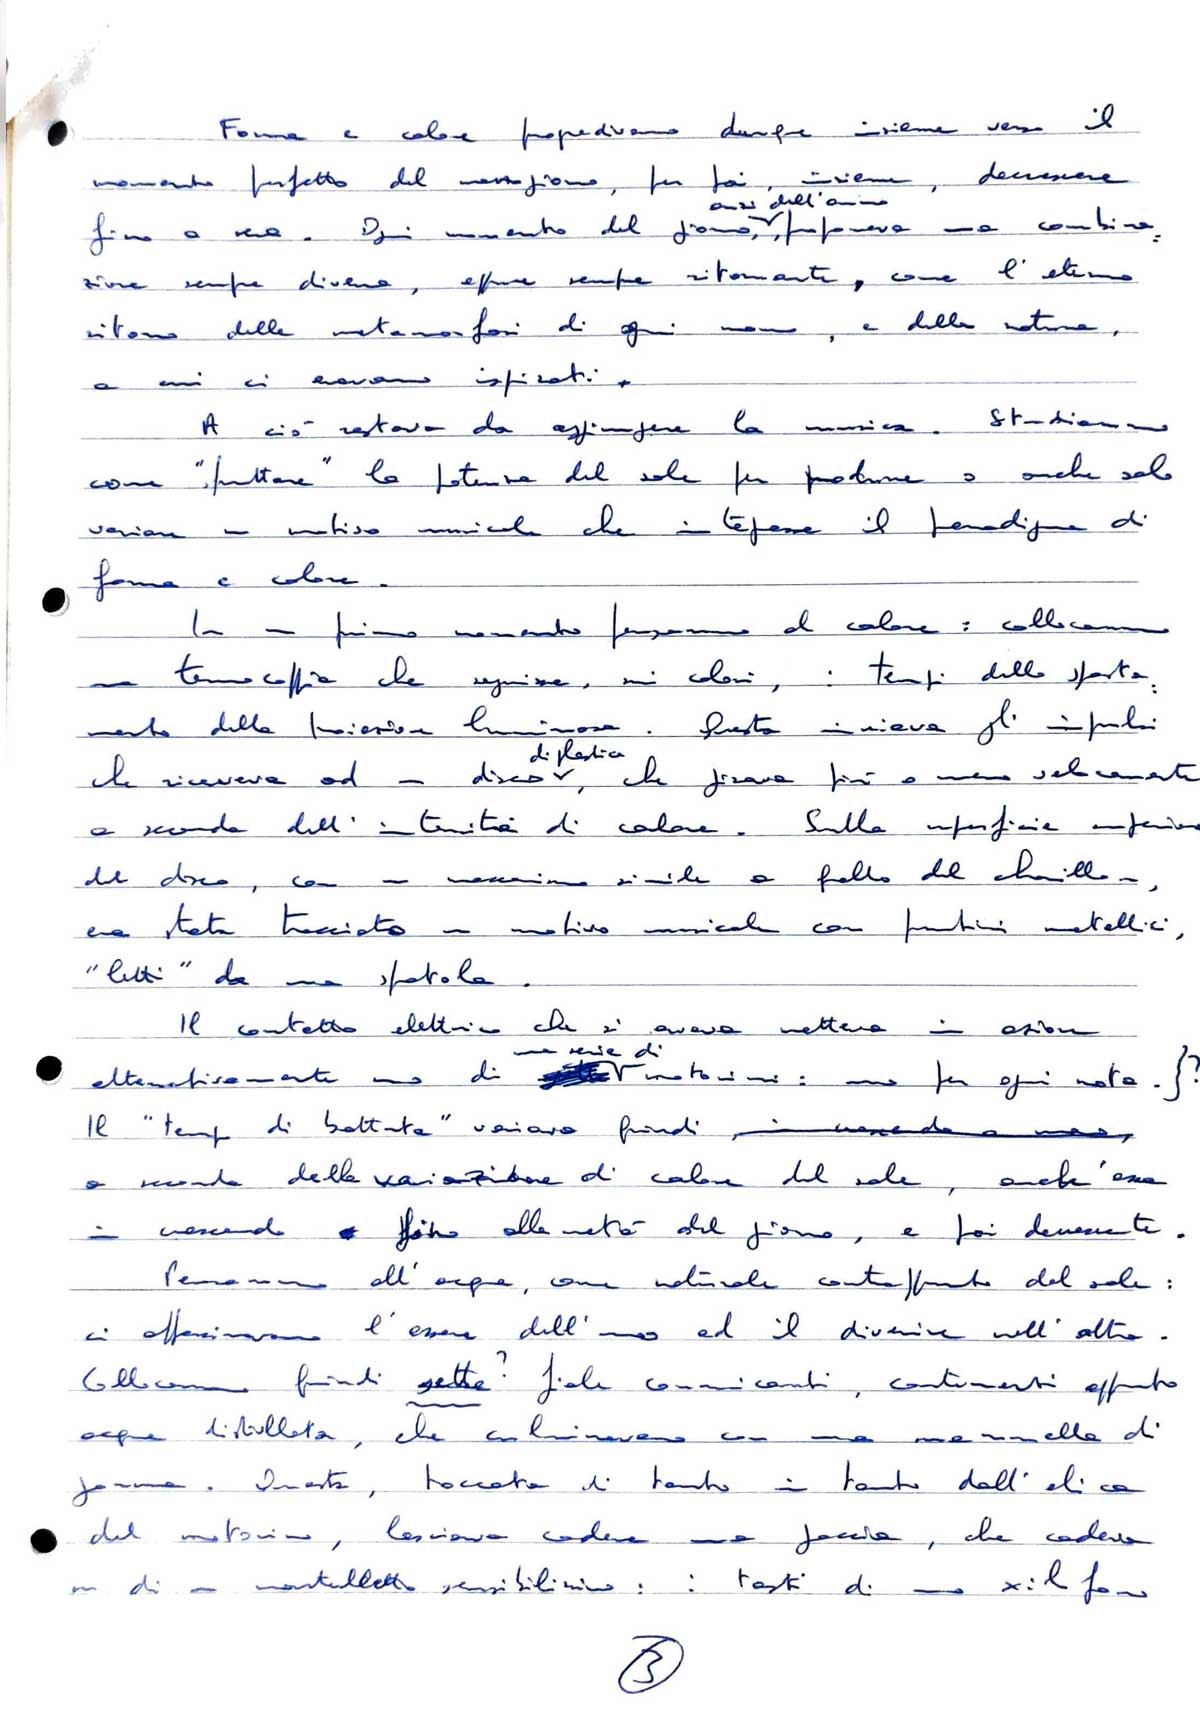 Forma e colore propedivano dunque insieme verso il
momento perfetto del mezzogiorno, per poi, insieme, decrescere
anzi dell'anno
fino a sera. Ogni momento del giorno, proponeva una combina=
zione sempre diversa, eppure sempre ritornante, come l'eterno
ritorno delle metamorfosi di ogni uomo, e della natura,
a cui ci eravamo ispirati.
A ciò restava da aggiungere la musica. Studiammo
come "sfruttare" la potenza del sole per produrre o anche solo
variare un motivo musicale che intepasse il paradigma di
forma e colore.
In un primo momento pensammo al calore: collocammo
una termocoppia che seguisse, nei colori, i tempi dello sposta=
mento della proiezione luminosa. Questa inviava gli impulsi
di plastica
che riceveva ad un disco, che girava più o meno velocemente
a seconda dell'intensità di calore. Sulla superficie superiore
del disco, con un meccanismo simile a quello del charillon,
era stato tracciato un motivo musicale con puntini metallici,
"letti" da una spatola.
Il contatto elettrico che si aveva metteva in azione
una serie di
alternativamente uno di motorini: uno per ogni nota. }?
Il "tempo di battuta" variava quindi, in crescendo o meno,
a seconda della variazione di calore del sole, anch'essa
in crescendo fino alla metà del giorno, e poi decrescente.
Pensammo all'acqua, come naturale contrappunto del sole:
ci affascinavano l'essere dell'uno ed il divenire nell'altra.
Collocammo quindi sette? fiale comunicanti, contenenti appunto
acqua distillata, che culminavano con una mammella di
gomma. Questa, toccata di tanto in tanto dall'elica
del motorino, lasciava cadere una goccia, che cadeva
su di un martelletto sensibilissimo: i tasti di uno xilofono
3